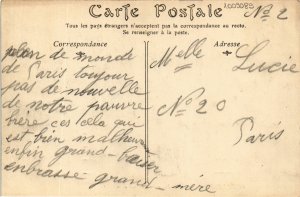 Carte Postale
Tous les pays étrangers n'acceptent pas la correspondance au recto.
Se renseigner à la poste.
Correspondance
Adresse
No 2
plein de monde
de Paris toujour
pas de nouvelle
de notre pauvre
frère ces cela qui
est bien malheureu
enfin grand-baiser
enbrasse grand-mère
Melle Lucie
No 20
Paris